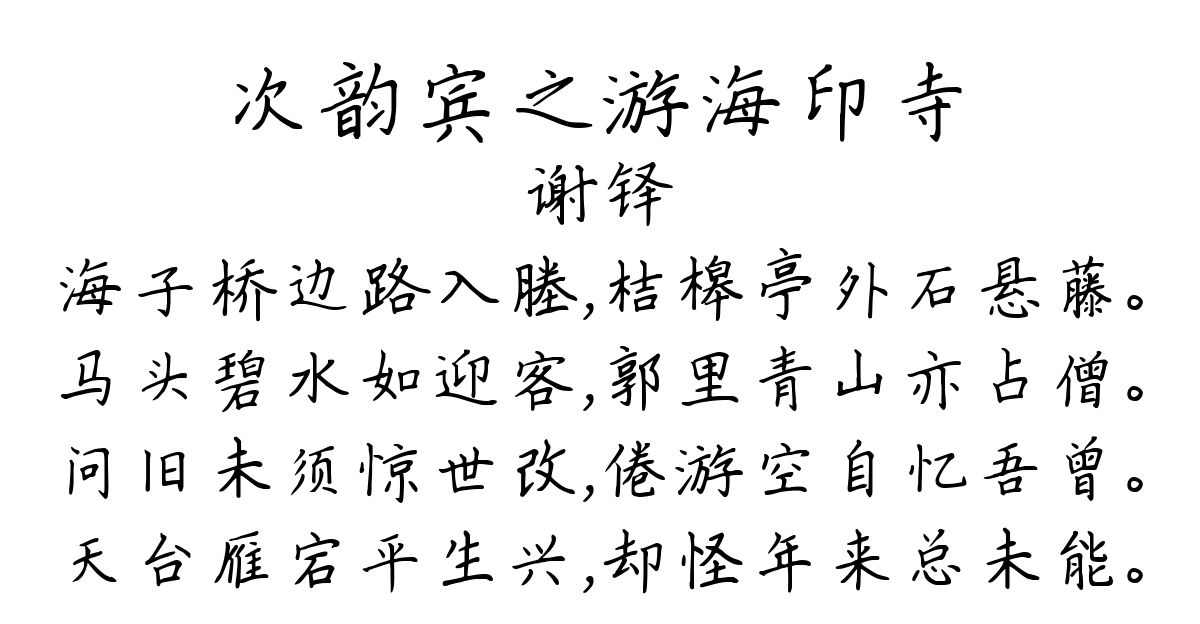 次韵宾之游海印寺
谢铎
海子桥边路入塍,桔槔亭外石悬藤。
马头碧水如迎客,郭里青山亦占僧。
问旧未须惊世改,倦游空自忆吾曾。
天台雁宕平生兴,却怪年来总未能。